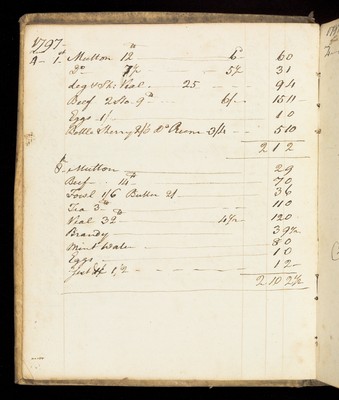 1797
4 - 1st Mutton 12 lb 6d 6 0
Do 5½ 3 1
Leg & Veal - 25 9 4
Beef 2 Sto. 9 lb 6/- 15 11
Eggs 1/- 1 0
Bottle Sherry 2/6 Do 3/4 5 10
2 1 2
8 - Mutton 2 9
Beef 14 lb 7 0
Fowl 1/6 Butter 2/ 3 6
Tea 3 1 10
Veal 32 lb 4½ 12 0
Brandy 3 9½
Mint Water 8 0
Eggs 1 0
1/2 1 2
2 10 2½